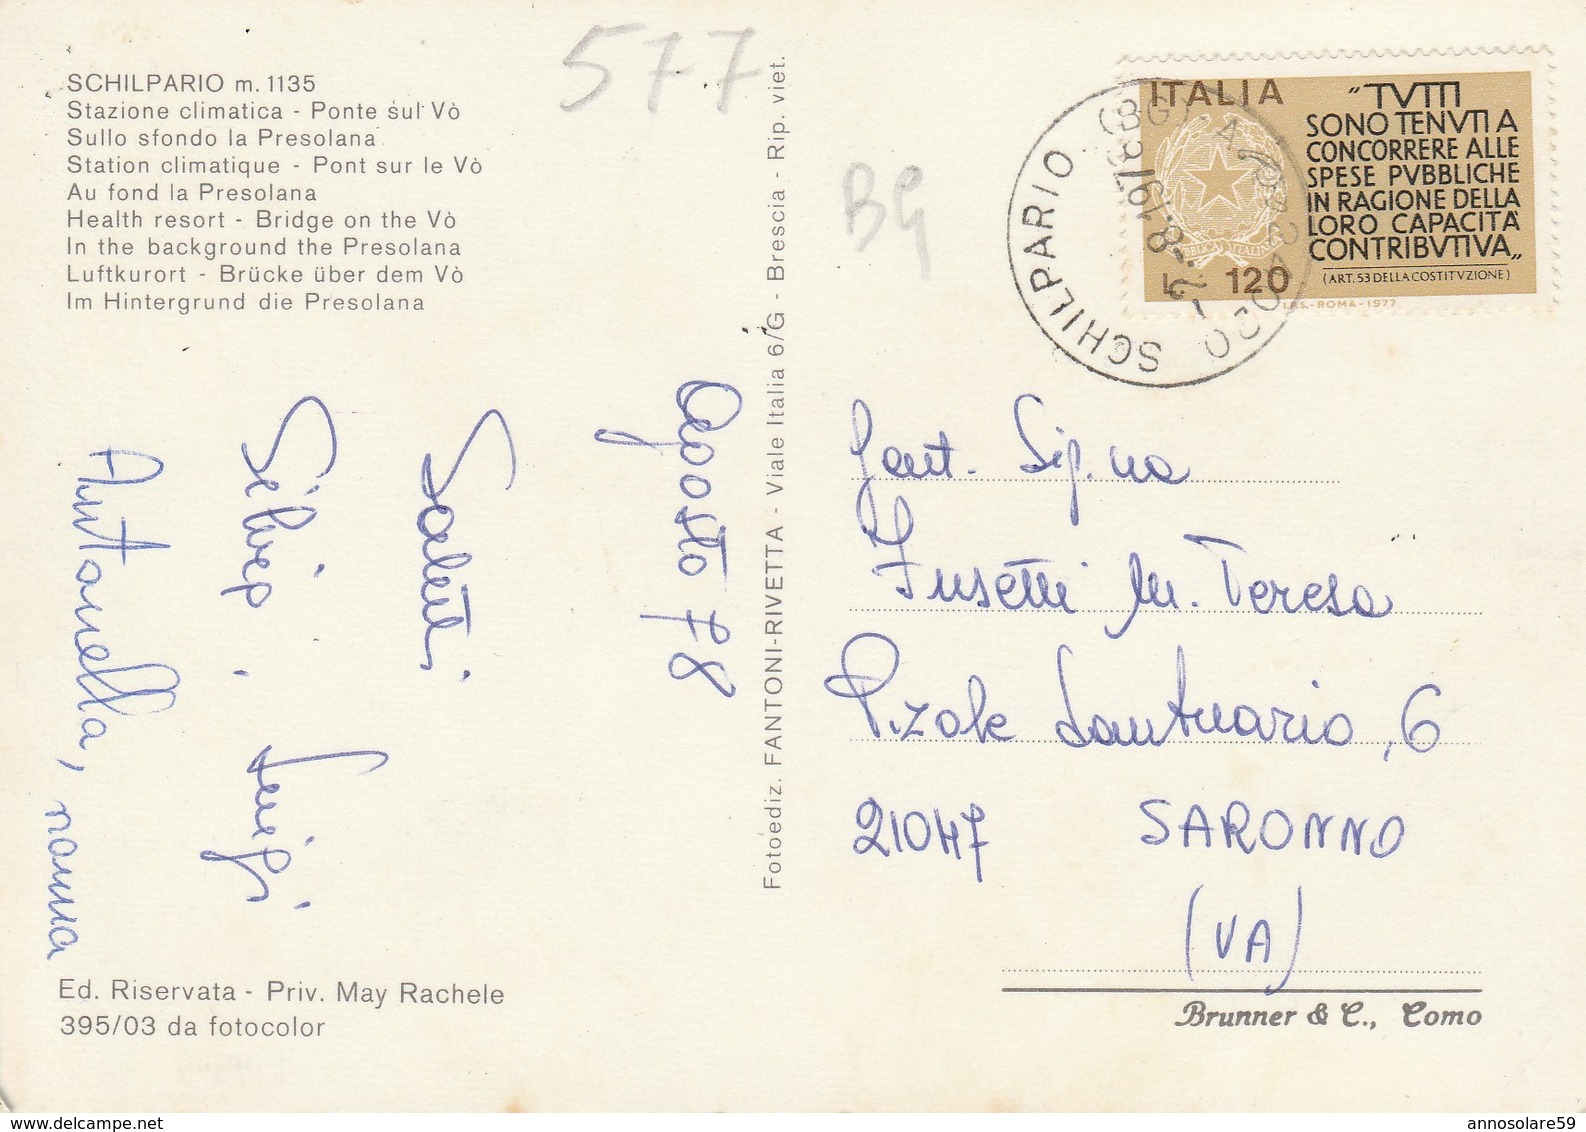 577
BG
SCHILPARIO m. 1135
Stazione climatica - Ponte sul Vò
Sullo sfondo la Presolana
Station climatique - Pont sur le Vò
Au fond la Presolana
Health resort - Bridge on the Vò
In the background the Presolana
Luftkurort - Brücke über dem Vò
Im Hintergrund die Presolana
Agosto 78
Saluti
Luigi
Antonella, nonna
Ed. Riservata - Priv. May Rachele
395/03 da fotocolor
Fotoediz. FANTONI-RIVETTA - Viale Italia 6/G - Brescia - Rip. viet.
ITALIA
120
"TVTTI
SONO TENVTI A
CONCORRERE ALLE
SPESE PVBBLICHE
IN RAGIONE DELLA
LORO CAPACITÀ
CONTRIBVTIVA„
(ART. 53 DELLA COSTITVZIONE)
I.P.S.-ROMA-1977
SCHILPARIO (BG)
Gent. Sig.na
Fusetti M. Teresa
P.zale Santuario, 6
21047 SARONNO
(VA)
Brunner & C., Como
www.delcampe.net
annosolare59